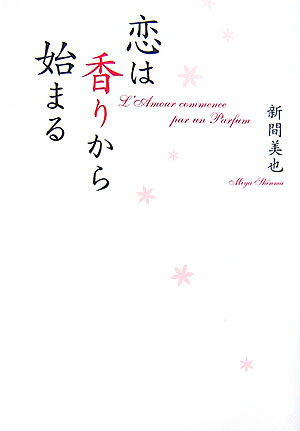 恋は
香りから
始まる
L'Amour commence
par un Parfum
新間美也
Miya Shinma